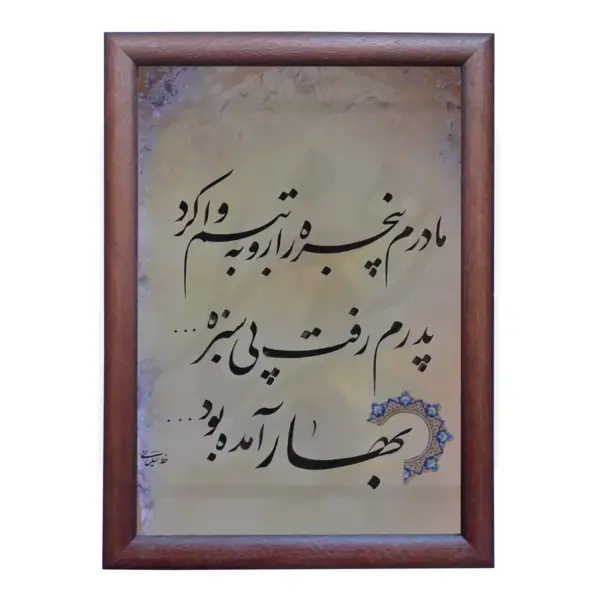 مادرم پنجره را رو به تبسم وا کرد
پدرم رفت پی سبزه ...
بهار آمده بود ...